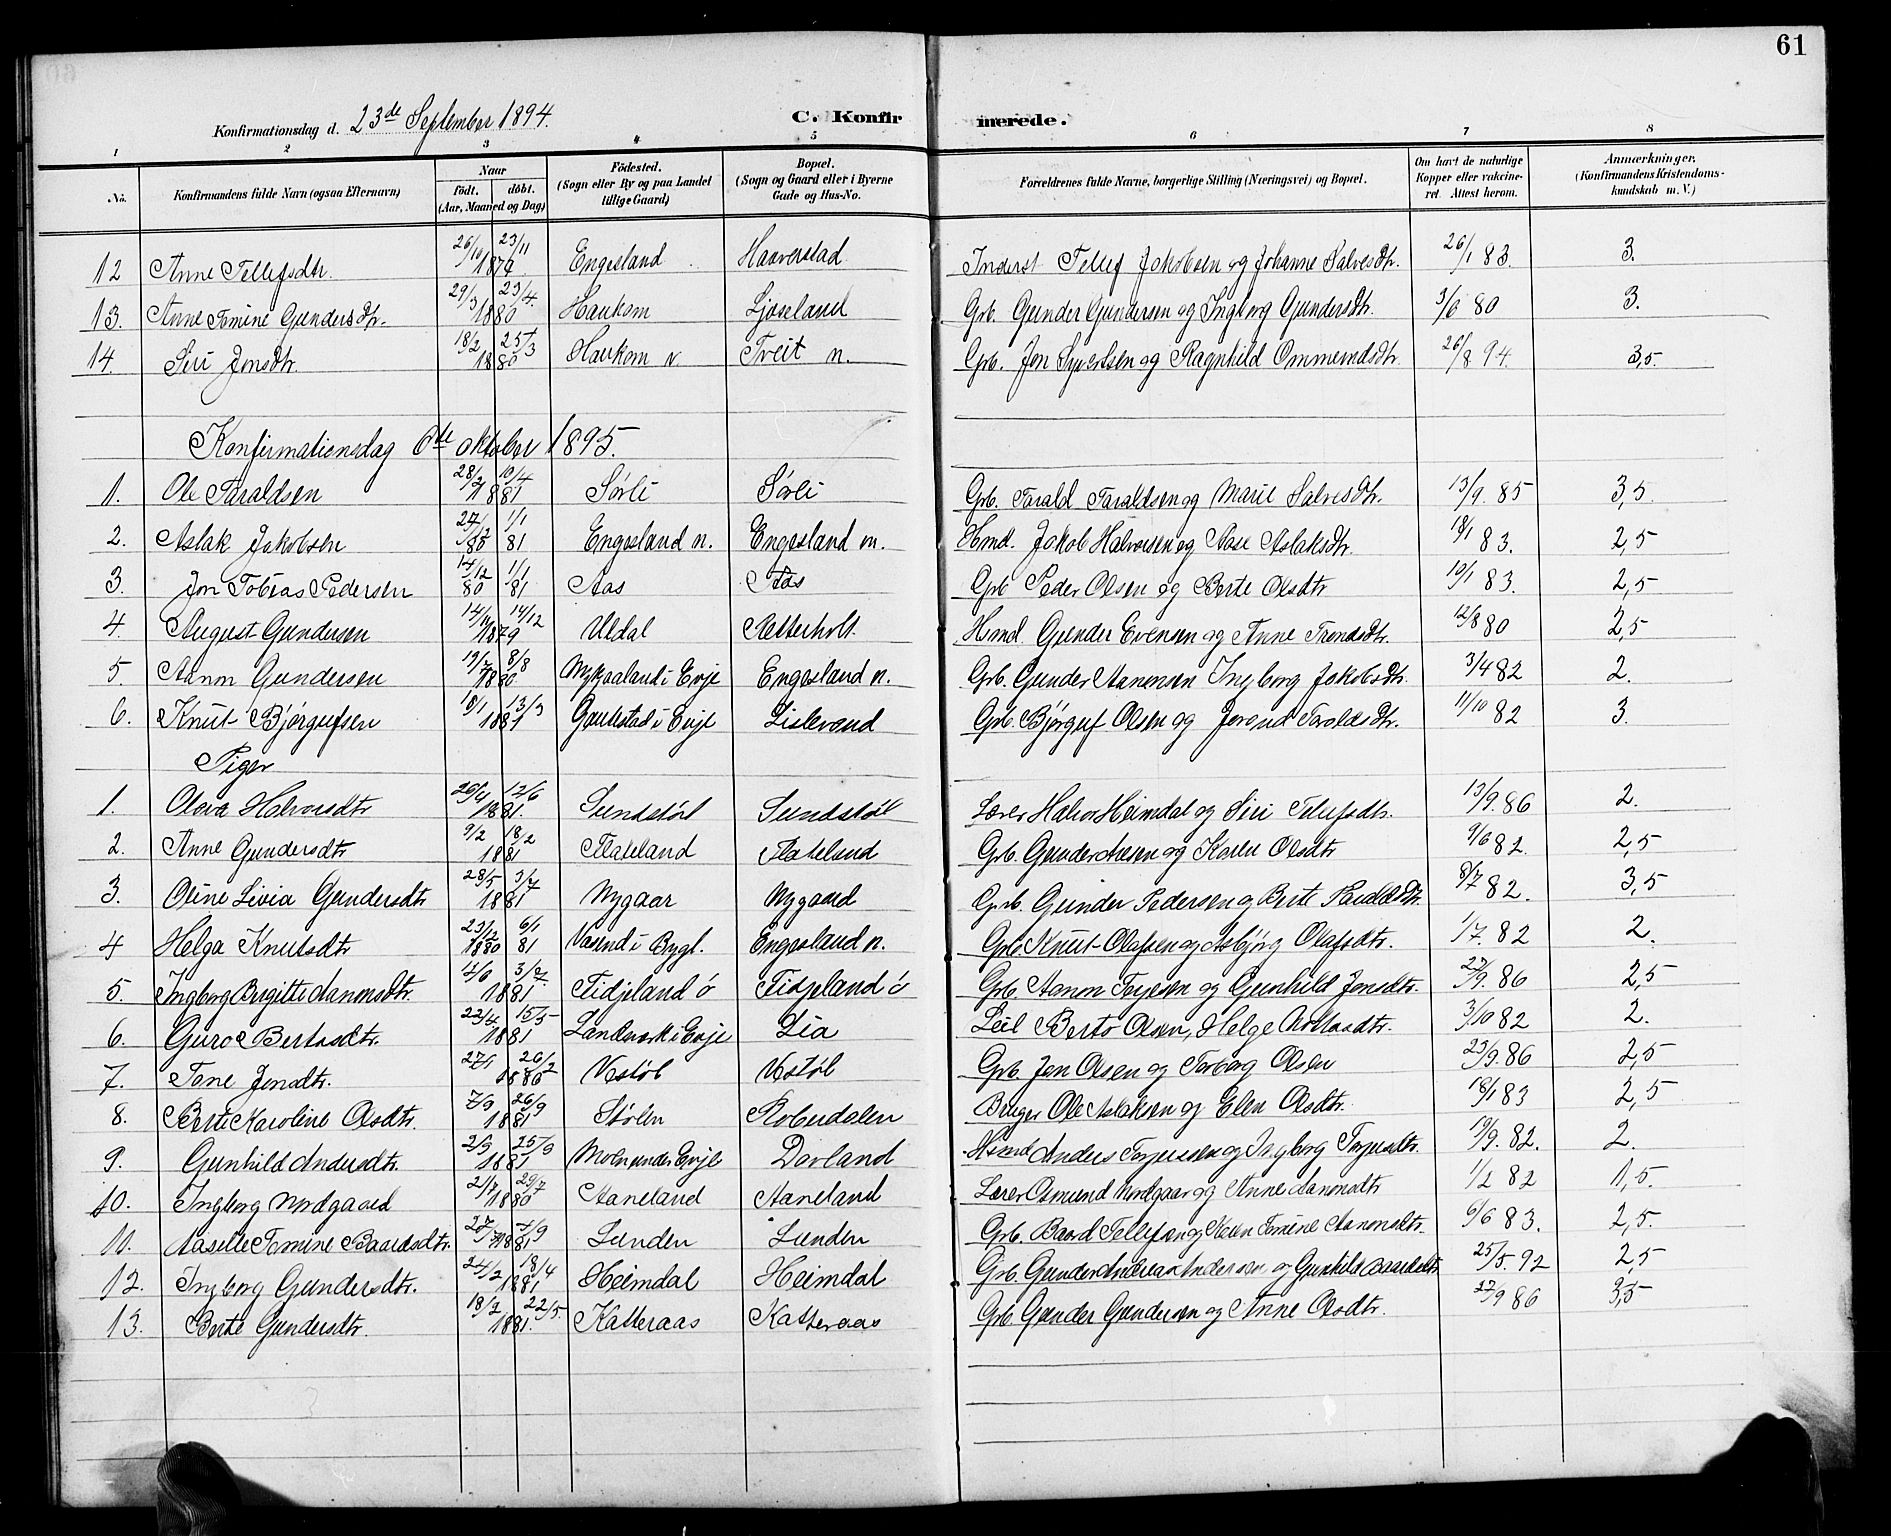 61
Konfirmationsdag d. 23de September 1894.
C. Konfirmerede.
1 2 3 4 5 6 7 8
No. Konfirmandens fulde Navn (ogsaa Efternavn) Naar født. døbt. (Aar, Maaned og Dag) Födested. (Sogn eller By og paa Landet tillige Gaard) Bopæl. (Sogn og Gaard eller i Byerne Gade og Hus-No. Forældrenes fulde Navne, borgerlige Stilling (Næringsvei) og Bopæl. Om havt de naturlige Kopper eller vakcineret. Attest herom. Anmærkninger. (Konfirmandens Kristendomskundskab m. V.)
12 Anne Tellefsdtr. 26/10 23/11 1879 Engesland Haaverstad Inderst Tellef Jakobsen og Johanne Salvesdtr. 26/1 83. 3.
13. Anne Tomine Gundersdtr. 29/3 23/4 1880 Haukom Ljoseland Grb. Gunder Gundersen og Ingborg Gundersdtr. 3/6 80 3.
14. Siri Jonsdtr. 18/2 25/3 1880 Haukom v. Tveit n. Grb. Jon Syvertsen og Ragnhild Ommundsdtr. 26/8 94. 3,5.
Konfirmationsdag 6te oktober 1895.
1. Ole Taraldsen 28/2 10/4 1881 Sørli Sørli Grb. Tarald Taraldsen og Marie Salvesdtr. 13/9. 85 3,5.
2. Aslak Jakobsen 80 1/1 81 Engesland n. Engesland n. Hmd. Jakob Halvorsen og Aase Aslaksdtr. 18/1 83. 2,5
3. Jon Tobias Pedersen 14/12 80 1/1 81 Aas Aas Grb Peder Olsen og Berte Olsdtr 19/1 83. 2,5
4. August Gundersen 14/10 14/12 1879 Uldal Aetterholt Hmd. Gunder Evensen og Anne Trondsdtr. 12/8 80 2,5
5 Aanon Gundersen 19/7 8/8 1880 Nykaaland i Evje Engesland n. Grb. Gunder Aanensen Ingborg Jakobsdtr. 3/4 82 2.
6. Knut Bjørgufsen 18/1 13/3 1881 Gautestad i Evje Lislevand Grb. Bjørguf Olsen og Jorand Taraldsdtr. 11/10 82 3.
Piger
1. Olava Halvorsdtr 26/4 12/6 1881. Sundstøl Sundstøl Lærer Halvor Heimdal og Siri Tellefsdtr. 13/9. 86 2.
2. Anne Gundersdtr 9/2 18/2 1881 Flateland Flateland Grb. Gunder Aasen og Karen Olsdtr 9/6 82. 2,5
3. Oline Livia Gundersdtr 28/5 3/7 1881 Nygaar Nygaard Grb. Gunder Pedersen og Berte 8/7 82. 3,5
4 Helga Knutsdtr 23/12 1880 6/1 81 Vasend i Bygl. Engesland n. Grb. Knut Olafsen og Asbjørg Olafsdtr. 1/7. 82 2.
5. Ingborg Birgitte Aanonsdtr. 4/6 3/7 1881 Fidjeland ö Fidjeland ö Grb. Aanon Terjesen og Gunhild Jonsdtr. 27/9. 86 2,5
6. Guro Bertosdtr. 22/4 15/5 1881 Landaas i Evje Lia Leil Berto Olsen, Helge 3/10 82 2.
7. Tone Jonsdtr. 27/1 26/2 1880 Vestøl Vestøl Grb. Jon Olsen og Torborg Olsen 23/9. 86 2,5
8. Berte Karoline Olsdtr. 7/9 26/9 1881 Stølen Roberdalen Bruger Ole Aslaksen og Elen Olsdtr. 18/1 83 2,5
9. Gunhild Andersdtr. 2/9 25/9 1881 Evje Dovland Hsmd Anders Terjessen og Ingborg Terjesdtr. 19/9. 82. 2.
10. Ingborg Nordgaard 2/7 29/7 1880 Aaneland Aaneland Lærer Osmund Nordgaar og Anne Aanonsdtr 1/2 82 1,5.
11. Aaselle Tomine Baardsdtr. 27/7 1881 Lunden Lunden Grb. Baard Tellefsen og Karen Tomine Aanonsdtr. 6/6 83. 2,5.
12. Ingborg Gundersdtr. 24/2 18/4 1881 Heimdal Heimdal Grb. Gunder Andreas Andersen og Gunhild Baardsdtr 25/5. 92 2,5
13. Berte Gundersdtr. 18/2 22/5. 1881. Katteraas Katteraas Grb. Gunder Gundersen og Anne Olsdtr. 27/9 86 3,5